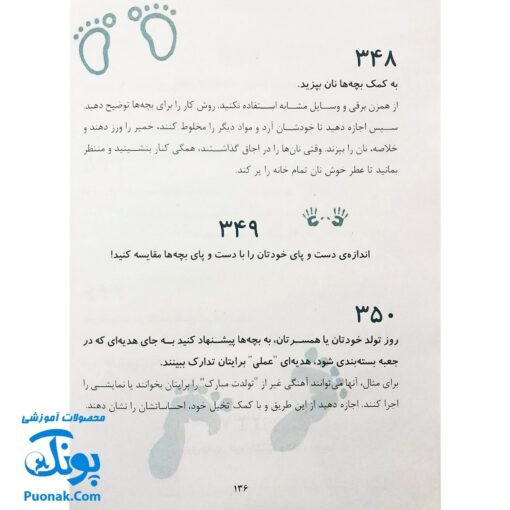 ۳۴۸
به کمک بچه‌ها نان بپزید.
از همزن برقی و وسایل مشابه استفاده نکنید. روش کار را برای بچه‌ها توضیح دهید.
سپس اجازه دهید تا خودشان آرد و مواد دیگر را مخلوط کنند، خمیر را ورز دهند و
خلاصه، نان را بپزند. وقتی نان‌ها را در اجاق گذاشتند، همگی کنار بنشینید و منتظر
بمانید تا عطر خوش نان تمام خانه را پر کند.
۳۴۹
اندازه‌ی دست و پای خودتان را با دست و پای بچه‌ها مقایسه کنید!
۳۵۰
روز تولد خودتان یا همسرتان، به بچه‌ها پیشنهاد کنید به جای هدیه‌ای که در
جعبه بسته‌بندی شود، هدیه‌ای "عملی" برایتان تدارک ببینند.
برای مثال، آنها می‌توانند آهنگی غیر از "تولدت مبارک" را برایتان بخوانند یا نمایشی را
اجرا کنند. اجازه دهید از این طریق و با کمک تخیل خود، احساساتشان را نشان دهند.
محصولات آموزشی
پونک
Puonak.Com
۱۳۶